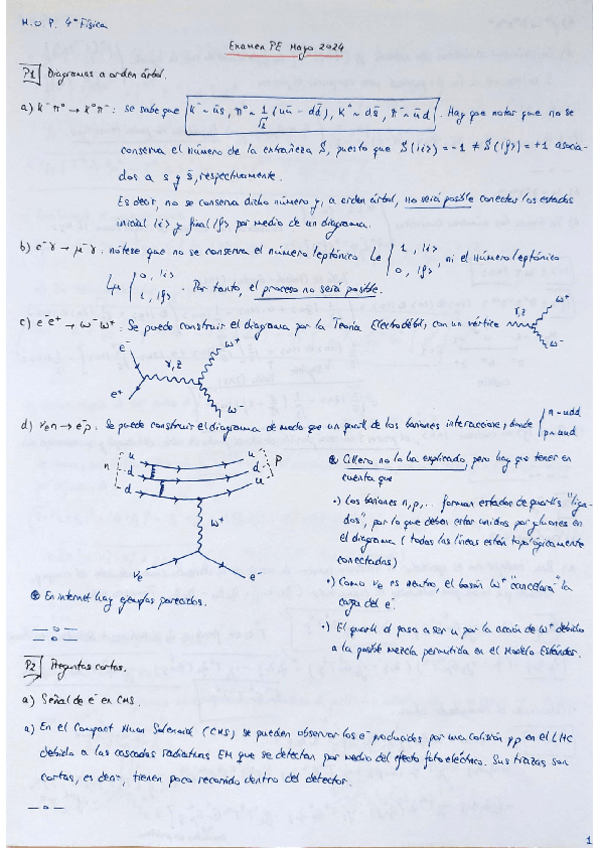 M.O.P. 4º Física
Examen PE Mayo 2024
P1 Diagramas a orden árbol.
a) k⁻π⁰ → k⁰π⁻: se sabe que k⁻~ūs, π⁰~1/√2 (uū - dd̄), k⁰~ds̄, π⁻~ūd. Hay que notar que no se
conserva el número de la extrañeza S, puesto que S(|i>) = -1 ≠ S(|f>) = +1 asocia-
dos a s y s̄, respectivamente.
Es decir, no se conserva dicho número y, a orden árbol, no será posible conectar los estados
inicial |i> y final |f> por medio de un diagrama.
b) e⁻γ → μ⁻γ: nótese que no se conserva el número leptónico Le { 1, |i> 0, |f> , ni el número leptónico
Lμ { 0, |i> 1, |f> . Por tanto, el proceso no será posible.
c) e⁻e⁺ → w⁻w⁺: Se puede construir el diagrama por la Teoría Electrodébil, con un vértice γ,z w⁺ w⁻
e⁻ e⁺ γ,z w⁺ w⁻
d) νe n → e⁻p: Se puede construir el diagrama de modo que un quark de los bariones interaccione, donde { n~udd p~uud
n u d d u d u p
w⁺
νe e⁻
Cillero no lo ha explicado, pero hay que tener en
cuenta que
·) Los bariones n,p,... forman estados de quarks "liga-
dos", por lo que deben estar unidos por gluones en
el diagrama (todas las líneas están topológicamente
conectadas)
·) Como νe es neutro el bosón w⁺ "cancelará" la
carga del e⁻.
·) El quark d pasa a ser u por la acción de w⁺ debido
a la posible mezcla permitida en el Modelo Estándar.
En internet hay ejemplos parecidos.
P2 Preguntas cortas.
a) Señal de e⁻ en CMS.
a) En el Compact Muon Solenoid (CMS) se pueden observar los e⁻ producidos por una colisión pp en el LHC
debido a las cascadas radiativas EM que se detectan por medio del efecto fotoeléctrico. Sus trazas son
cortas, es decir, tienen poco recorrido dentro del detector.
1